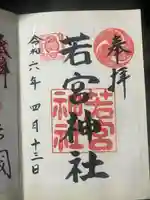 奉拝
若宮神社
若宮
神社
令和六年 四月十三日